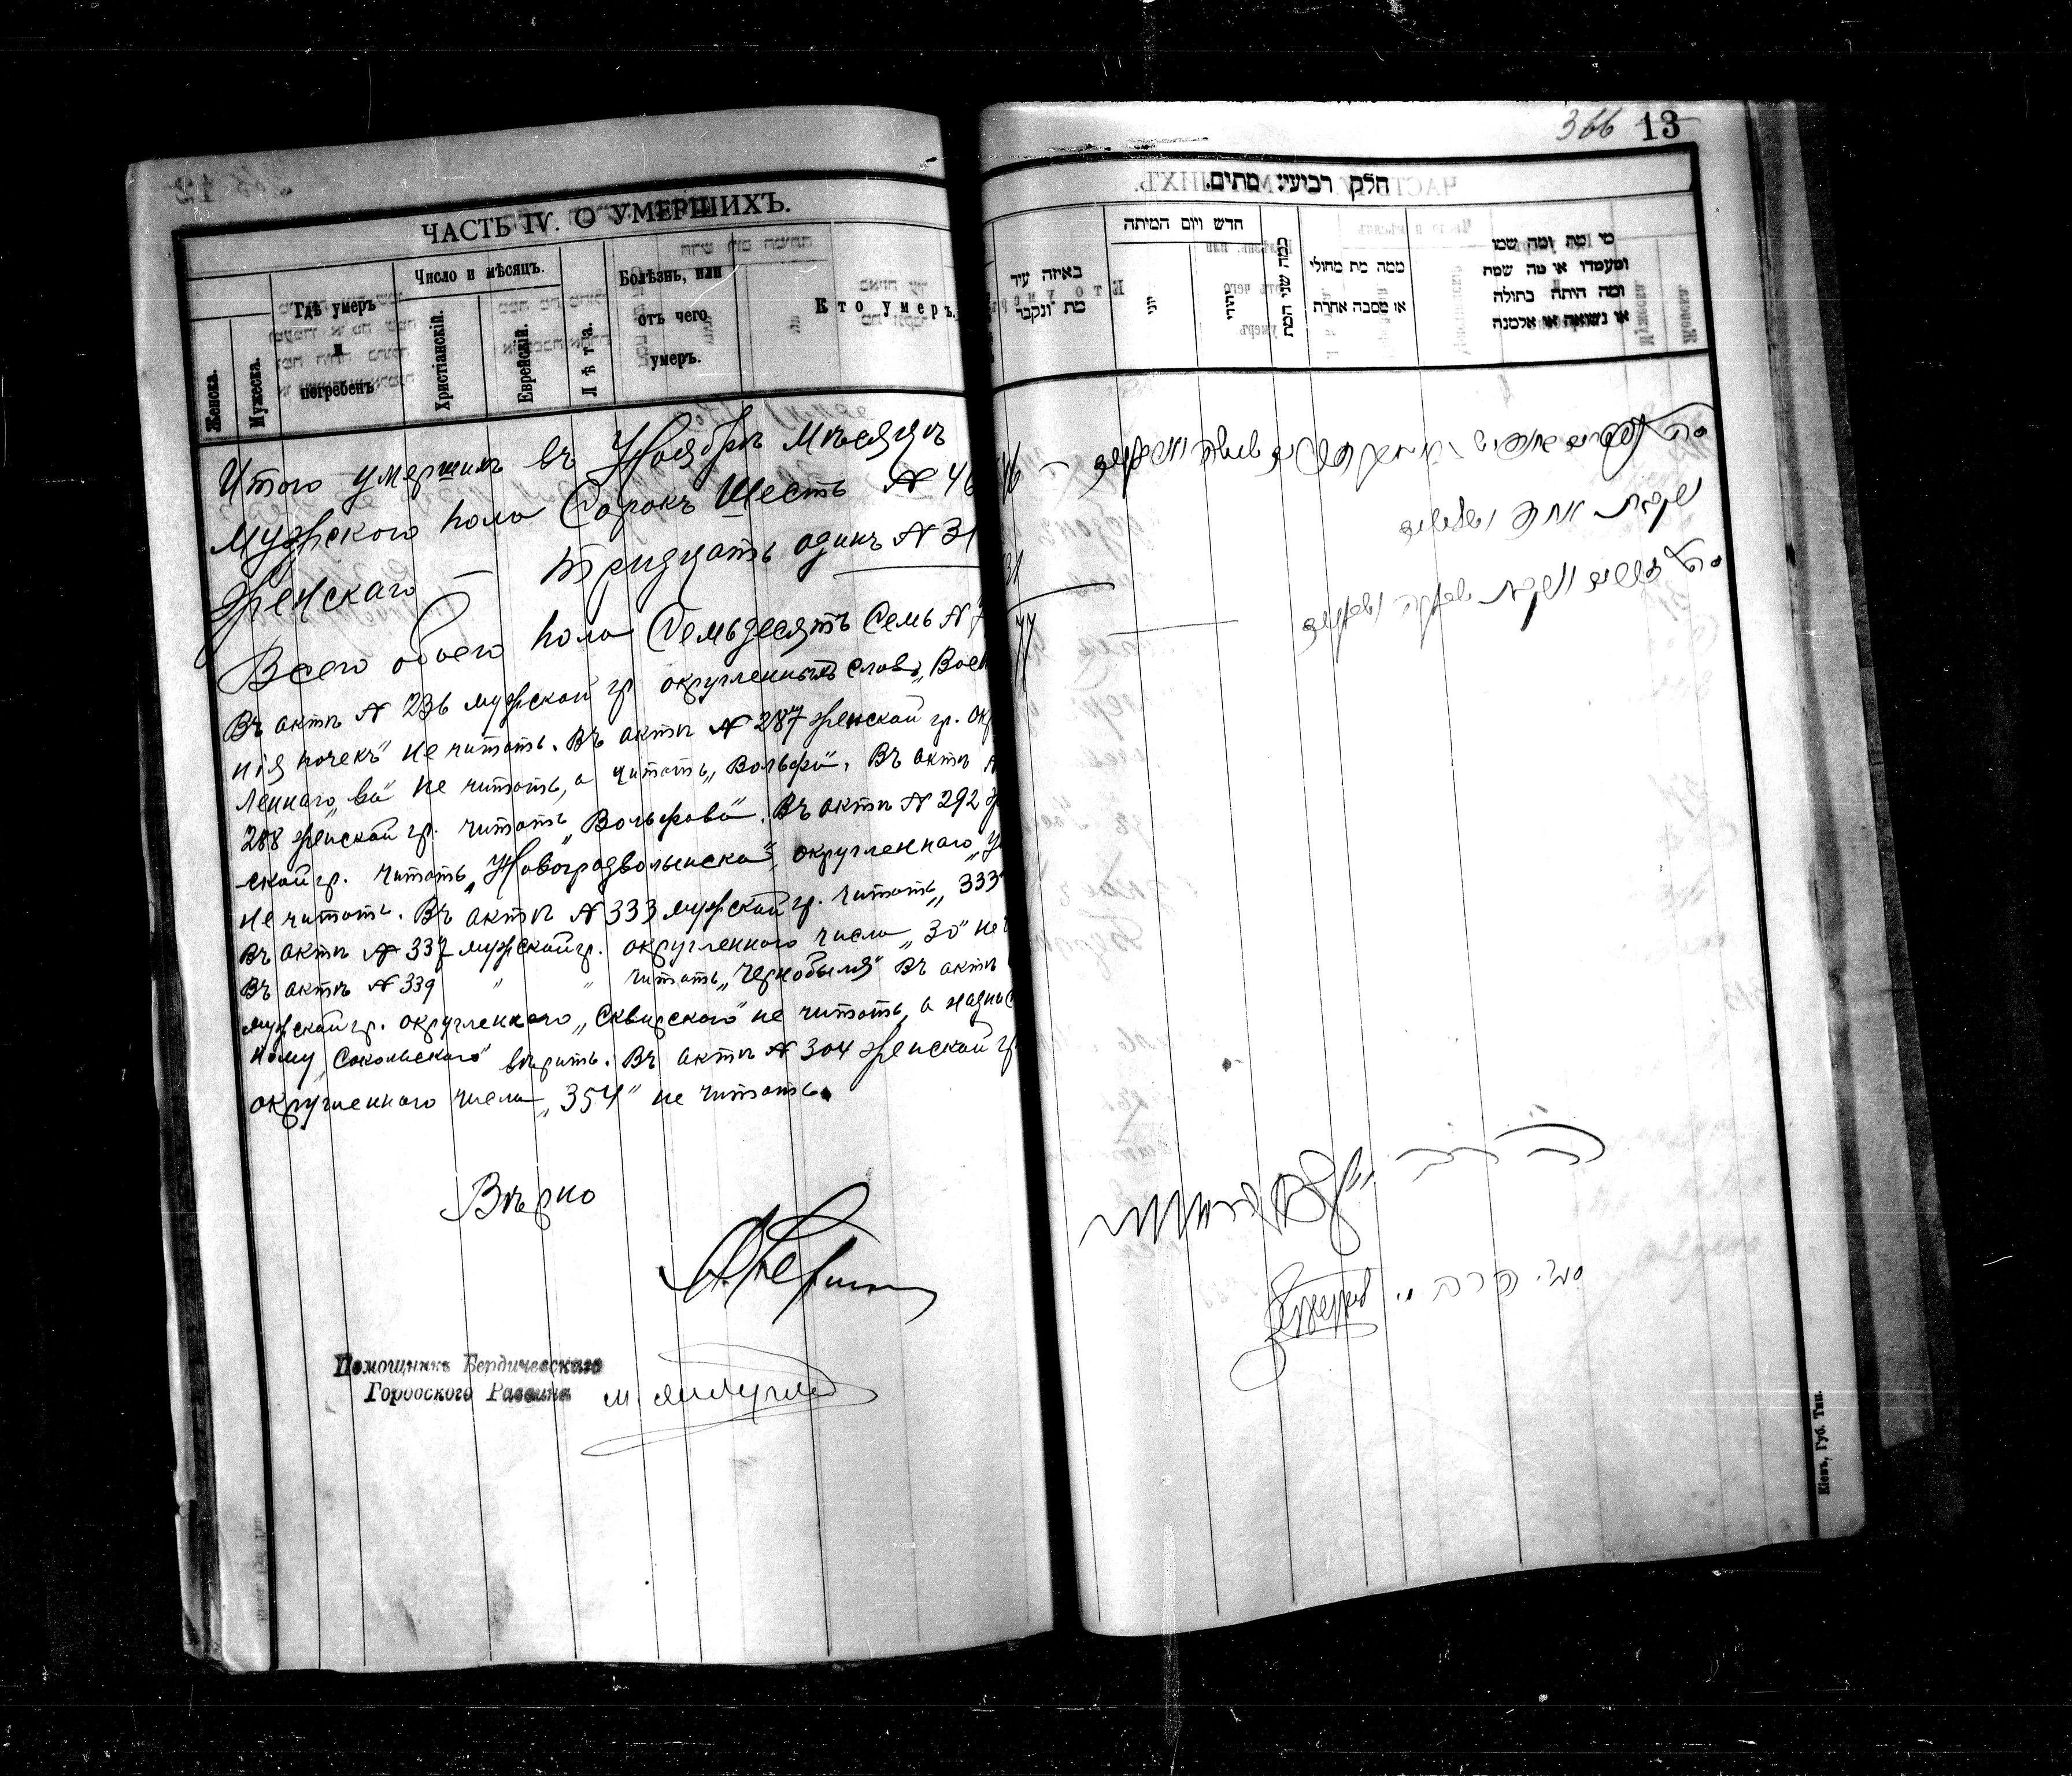 ЧАСТЬ IV. О УМЕРШИХЪ.
Женска.
Мужеска.
Гдѣ умеръ
и
погребенъ
Число и мѣсяцъ.
Христіанскій.
Еврейскій.
Лѣта.
Болѣзнь, или
отъ чего
умеръ.
Кто умеръ,
Итого умершихъ въ Ноябрѣ мѣсяцѣ
Мужского пола Сорокъ Шесть № 46
Женскаго — тридцать одинъ № 31
Всего обоего пола Семьдесятъ Семь № 77
Въ актѣ № 236 мужской гр округленныхъ словъ „Воспале
нія почекъ“ не читать. Въ актѣ № 287 женской гр. окр
леннаго „ва“ не читать, а читать „Вольфа“. Въ актѣ №
288 женской гр. читать „Вольфова“. Въ актѣ № 292 ж
ской гр. читать „Новоградволынска“, округленнаго
не читать. Въ актѣ № 333 мужской гр. читать „333“
Въ актѣ № 337 мужской гр. округленного числа „30“ не
Въ актѣ № 339 " " читать „Чернобыля“ Въ актѣ
мужской гр. округленного „Сквирского“ не читать, а надпис
ному „Сокольского“ вѣрить. Въ актѣ № 304 женской гр
округленного числа „354“ не читать.
Вѣрно
Помощникъ Бердичевскаго
Городского Раввина
366 13
חלק רביעי מתים.
באיזה עיר
מת ונקבר
חדש ויום המיתה
יוני
יהודי
כמה שני המת
ממה מת מחולי
או מסבה אחרת
מי מת ומה שמו
ומעמדו או מה שמת
ומה היתה בתולה
או נשואה או אלמנה
נקבות אחת ושלשים
סה"כ זכרים ונקבות שבעה ושבעים
Кіевъ, Губ. Тип.